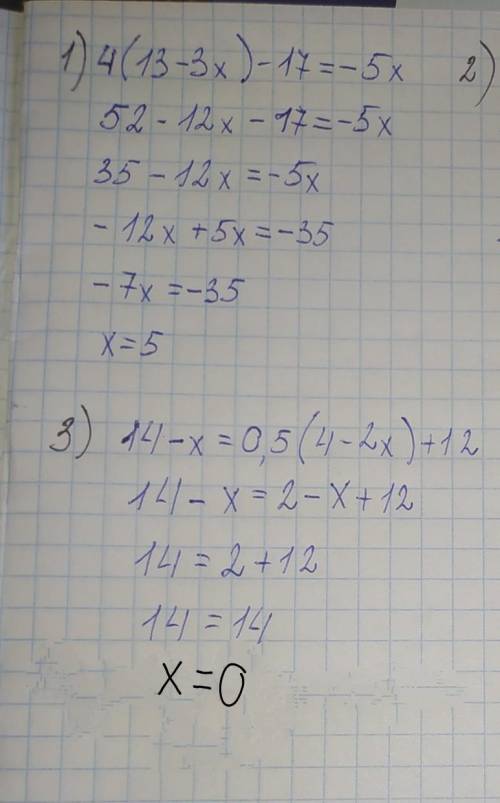 1) 4(13-3x)-17=-5x
52-12x-17=-5x
35-12x=-5x
-12x+5x=-35
-7x=-35
x=5
2)
3) 14-x=0,5(4-2x)+12
14-x=2-x+12
14=2+12
14=14
x=0